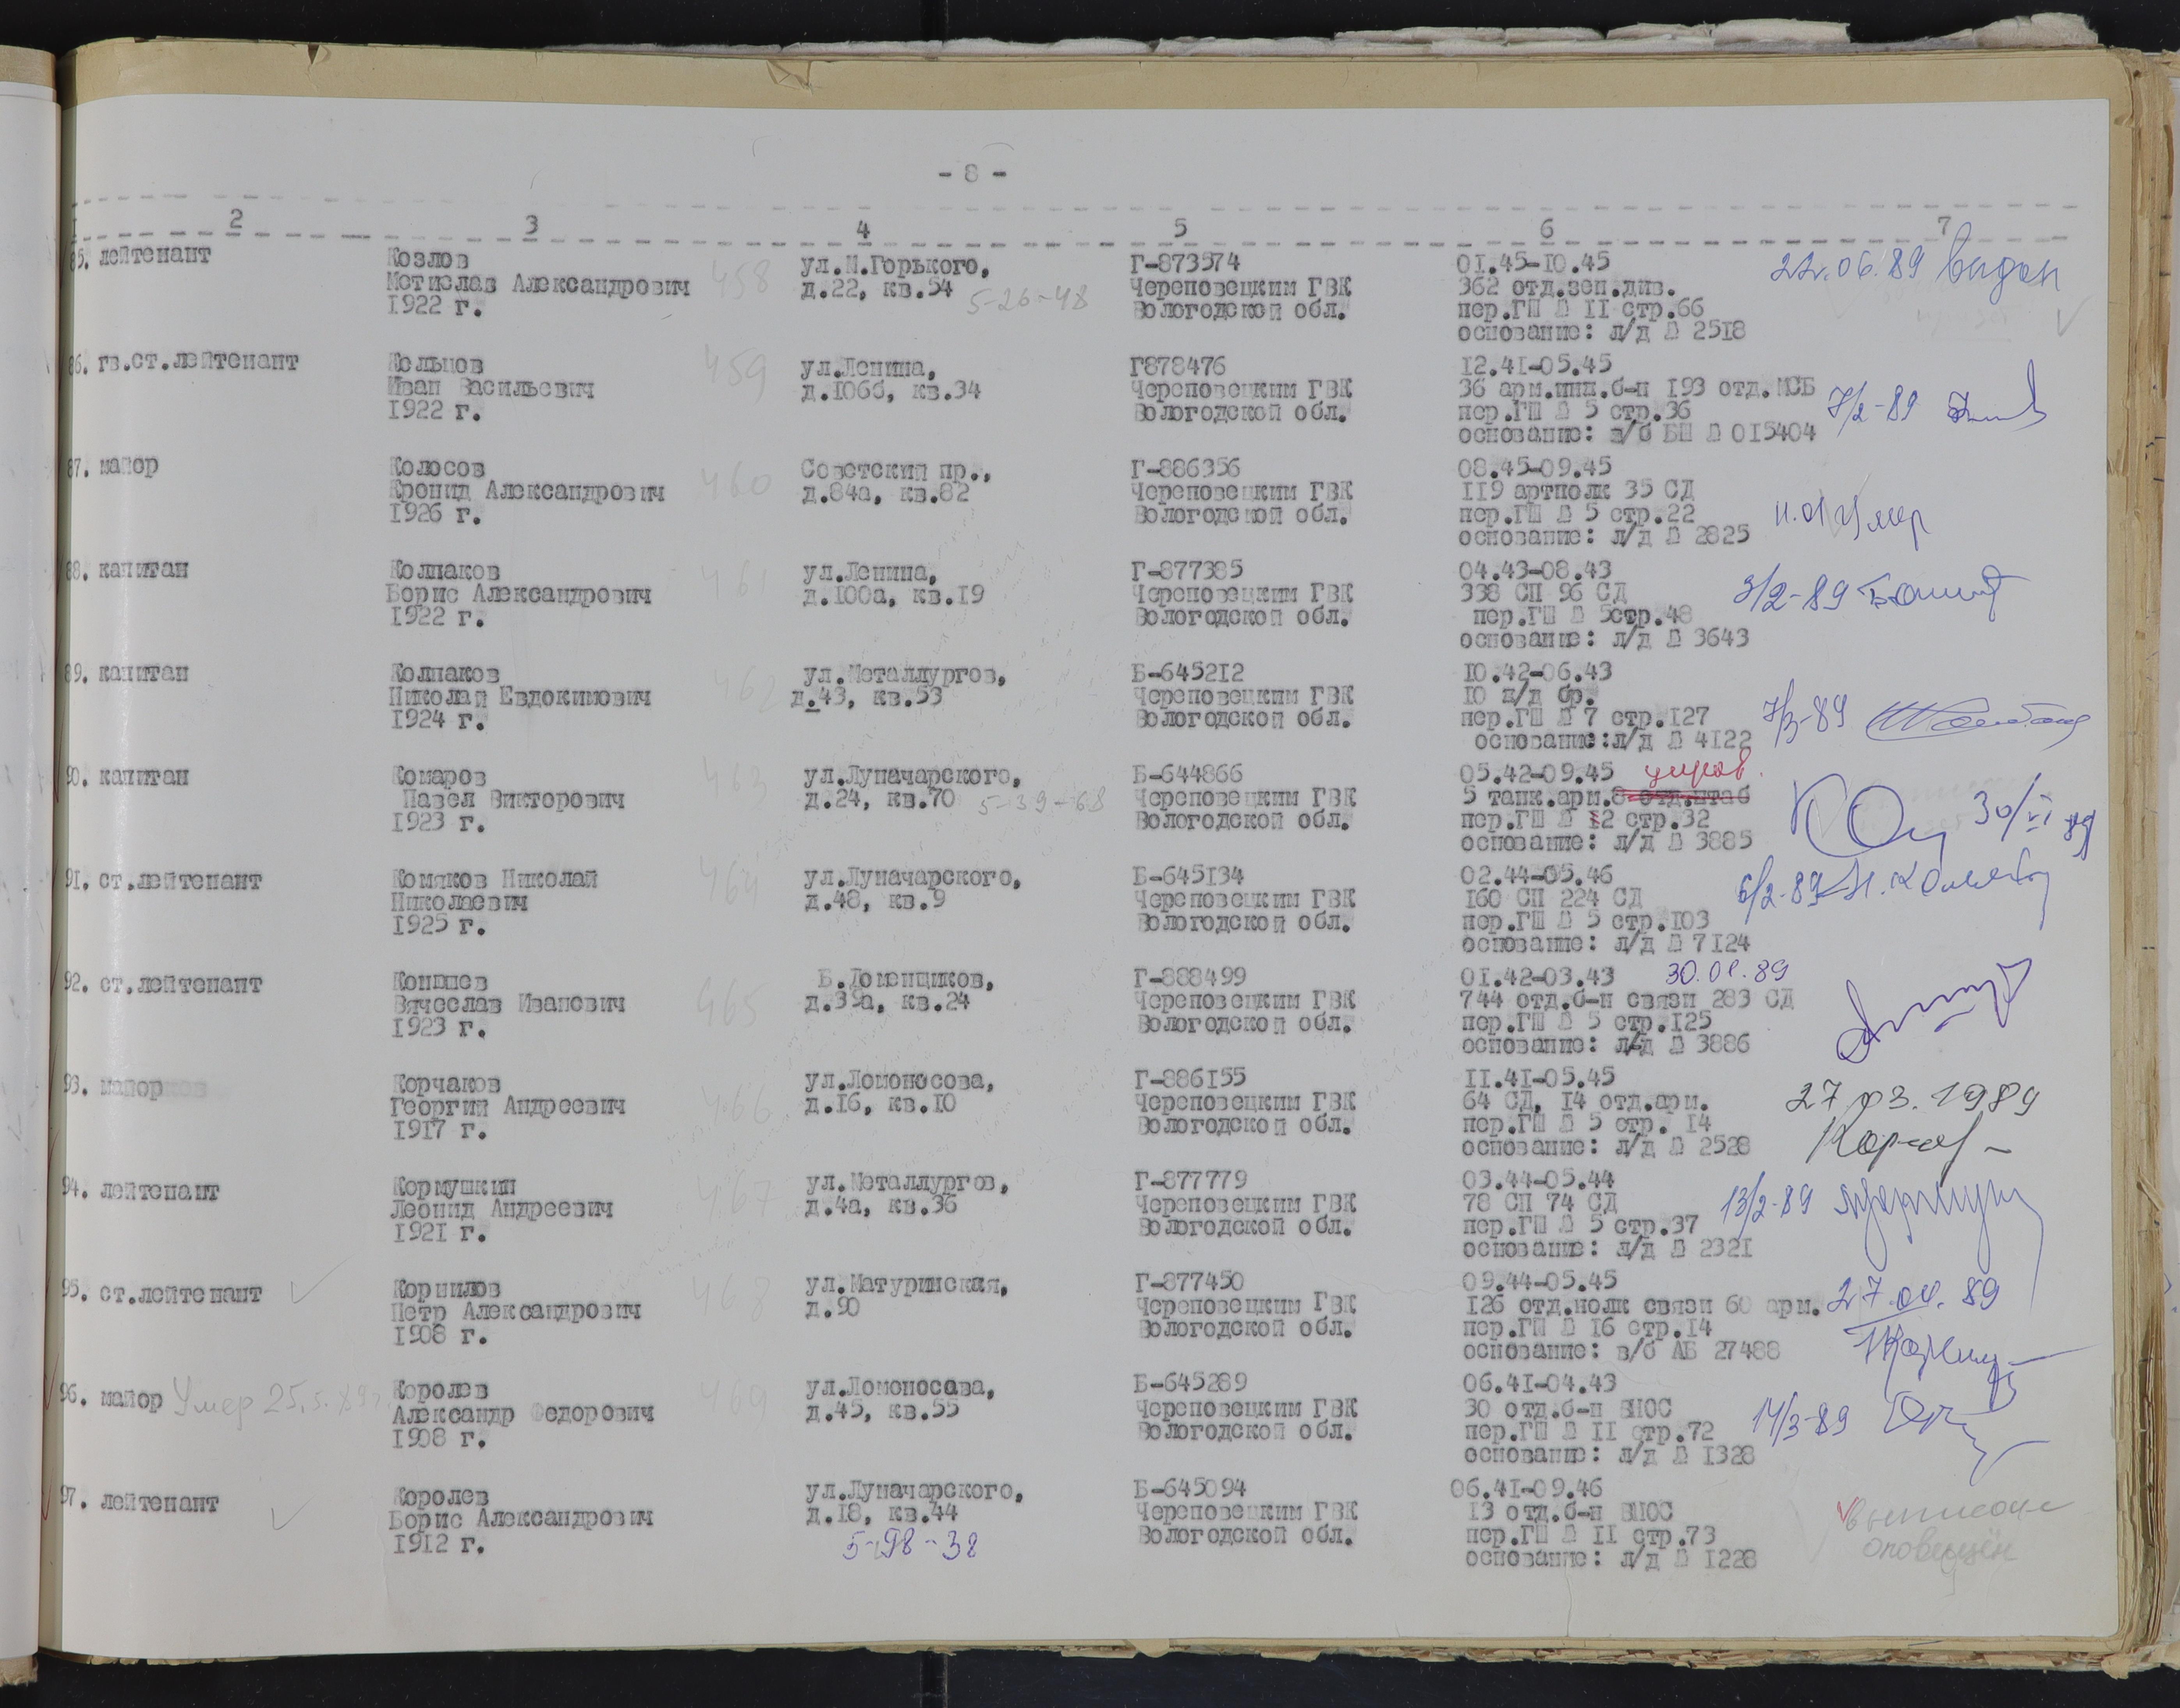 - 8 -
2 3 4 5 6 7
85. лейтенант
Козлов
Мстислав Александрович
1922 г.
458
ул.М.Горького,
д.22, кв.54
5-26-48
Г-873574
Череповецким ГВК
Вологодской обл.
01.45-10.45
362 отд.зен.див.
пер.ГШ № 11 стр.66
основание: л/д № 2518
22.06.89 выдан
86. гв.ст.лейтенант
Кельцов
Иван Васильевич
1922 г.
459
ул.Ленина,
д.106б, кв.34
Г878476
Череповецким ГВК
Вологодской обл.
12.41-05.45
36 арм.инж.б-н 193 отд.МСБ
пер.ГШ № 5 стр.36
основание: в/б БШ № 015404
7/2-89
87. майор
Колосов
Кронид Александрович
1926 г.
460
Советский пр.,
д.84а, кв.82
Г-886356
Череповецким ГВК
Вологодской обл.
08.45-09.45
119 артполк 35 СД
пер.ГШ № 5 стр.22
основание: л/д № 2825
умер
88. капитан
Колпаков
Борис Александрович
1922 г.
461
ул.Ленина,
д.100а, кв.19
Г-877385
Череповецким ГВК
Вологодской обл.
04.43-08.43
338 СП 96 СД
пер.ГШ № 5стр.48
основание: л/д № 3643
3/2-89
89. капитан
Колпаков
Николай Евдокимович
1924 г.
462
ул.Металлургов,
д.43, кв.53
Б-645212
Череповецким ГВК
Вологодской обл.
10.42-06.43
10 ж/д бр.
пер.ГШ № 7 стр.127
основание:л/д № 4122
7/3-89
90. капитан
Комаров
Павел Викторович
1923 г.
463
ул.Луначарского,
д.24, кв.70
5-39-68
Б-644866
Череповецким ГВК
Вологодской обл.
05.42-09.45
5 танк.арм.8 отд.штаб
пер.ГШ № 12 стр.32
основание: л/д № 3885
30/VI 89
91. ст.лейтенант
Комяков Николай
Николаевич
1925 г.
464
ул.Луначарского,
д.48, кв.9
Б-645134
Череповецким ГВК
Вологодской обл.
02.44-05.46
160 СП 224 СД
пер.ГШ № 5 стр.103
основание: л/д № 7124
6/2-89
92. ст.лейтенант
Коншев
Вячеслав Иванович
1923 г.
465
Б.Доменщиков,
д.39а, кв.24
Г-888499
Череповецким ГВК
Вологодской обл.
01.42-03.43
744 отд.б-н связи 283 СД
пер.ГШ № 5 стр.125
основание: л/д № 3886
30.01.89
93. майор
Корчаков
Георгий Андреевич
1917 г.
466
ул.Ломоносова,
д.16, кв.10
Г-886155
Череповецким ГВК
Вологодской обл.
11.41-05.45
64 СД, 14 отд.арм.
пер.ГШ № 5 стр. 14
основание: л/д № 2528
27.03.1989
94. лейтенант
Кормушкин
Леонид Андреевич
1921 г.
467
ул.Металлургов,
д.4а, кв.36
Г-877779
Череповецким ГВК
Вологодской обл.
03.44-05.44
78 СП 74 СД
пер.ГШ № 5 стр.37
основание: л/д № 2321
13/2-89
95. ст.лейтенант
Корнилов
Петр Александрович
1908 г.
468
ул.Матуринская,
д.90
Г-877450
Череповецким ГВК
Вологодской обл.
09.44-05.45
126 отд.полк связи 60 арм.
пер.ГШ № 16 стр.14
основание: в/б АБ 27488
27.04.89
96. майор
Умер 25.5.89
Королев
Александр Федорович
1908 г.
469
ул.Ломоносова,
д.45, кв.55
Б-645289
Череповецким ГВК
Вологодской обл.
06.41-04.43
30 отд.б-н ВНОС
пер.ГШ № 11 стр.72
основание: л/д № 1328
14/3-89
97. лейтенант
Королев
Борис Александрович
1912 г.
ул.Луначарского,
д.18, кв.44
5-98-38
Б-645094
Череповецким ГВК
Вологодской обл.
06.41-09.46
13 отд.б-н ВНОС
пер.ГШ № 11 стр.73
основание: л/д № 1228
оповещён